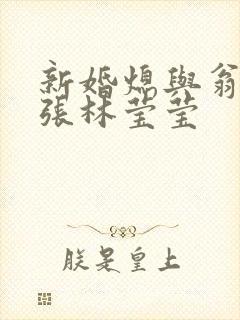 新婚熄與翁
張林莹莹
朕是皇上